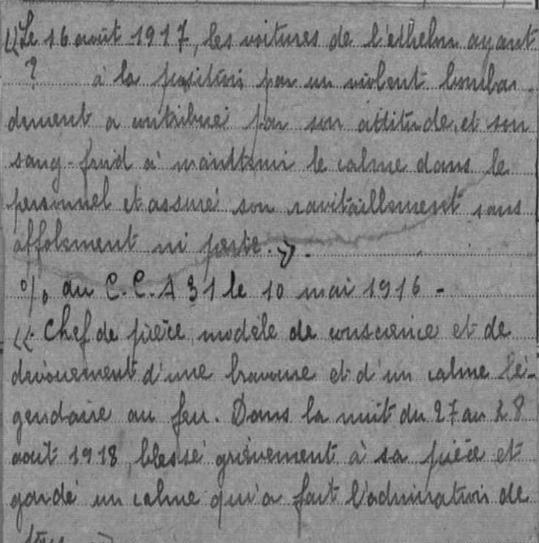 « Le 16 août 1917, les voitures de l'echelon ayant
? à la position par un violent bombar
dement a contribué par son attitude et son
sang-froid à maintenir le calme dans le
personnel et assuré son ravitaillement sans
affolement ni perte. ».
% du C.C.A 31 le 10 mai 1916 -
« Chef de pièce, modèle de conscience et de
dévouement d'une bravoure et d'un calme lé-
gendaire au feu. Dans la nuit du 27 au 28
août 1918, blessé grièvement à sa pièce et
gardé un calme qu'a fait l'admiration de